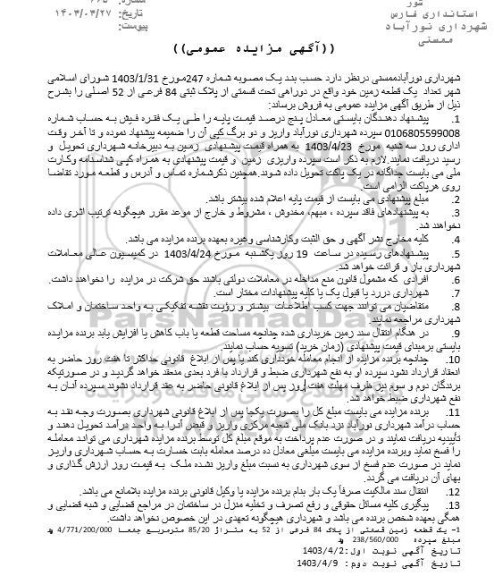 کشور
استانداری فارس
شهرداری نورآباد
ممسنی
تاریخ: ۱۴۰۳/۰۳/۲۷
پیوست:
((آگهی مزایده عمومی))
شهرداری نورآبادممسنی درنظر دارد حسب بند یک مصوبه شماره 247مورخ 1403/1/31 شورای اسلامی
شهر تعداد یک قطعه زمین خود واقع در دوراهی تحت قسمتی از پلاک ثبتی 84 فرعی از 52 اصلی را بشرح
ذیل از طریق آگهی مزایده عمومی به فروش برساند:
1. پیشنهاد دهندگان بایستی معادل پنج درصد قیمت پایه را طی یک فقره فیش به حساب شماره
0106805599008 سپرده شهرداری نورآباد واریز و دو برگ کپی آن را ضمیمه پیشنهاد نموده و تا آخر وقت
اداری روز سه شنبه مورخ 1403/4/23 به همراه قیمت پیشنهادی زمین به دبیرخانه شهرداری تحویل و
رسید دریافت نمایند.لازم به ذکر است سپرده واریزی زمین و قیمت پیشنهادی به همراه کپی شناسنامه وکارت
ملی می بایست جداگانه در یک پاکت تحویل داده شوند.همچنین ذکرشماره تماس و آدرس و قطعه مورد تقاضا
روی هرپاکت الزامی است.
2. مبلغ پیشنهادی می بایست از قیمت پایه اعلام شده بیشتر باشد.
3. به پیشنهادهای فاقد سپرده ، مبهم، مخدوش ، مشروط و خارج از موعد مقرر هیچگونه ترتیب اثری داده
نخواهند شد.
4. کلیه مخارج نشر آگهی و حق الثبت وکارشناسی وغیره بعهده برنده مزایده می باشد.
5. پیشنهادهای رسیده در ساعت 19 روز یکشنبه مورخ 1403/4/24 در کمیسیون عالی معاملات
شهرداری باز و قرائت خواهد شد.
6. افرادی که مشمول قانون منع مداخله در معاملات دولتی باشند حق شرکت در مزایده را نخواهند داشت.
7. شهرداری دررد یا قبول یک یا کلیه پیشنهادات مختار است.
8. متقاضیان می توانند جهت کسب اطلاعات بیشتر و رؤیت نقشه تفکیکی به واحد ساختمان و املاک
شهرداری مراجعه نمایند.
9. در هنگام انتقال سند زمین خریداری شده چنانچه مساحت قطعه یا باب کاهش یا افزایش یابد برنده مزایده
بایستی برمبنای قیمت پیشنهادی (زمان خرید) تسویه حساب نمایند.
10. چنانچه برنده مزایده از انجام معامله خودداری کند یا پس از ابلاغ قانونی حداکثر تا هفت روز حاضر به
انعقاد قرارداد نشود سپرده او به نفع شهرداری ضبط و قرارداد با فرد بعدی منعقد خواهد گردید و در صورتیکه
برندگان دوم و سوم نیز ظرف مهلت هفت روز پس از ابلاغ قانونی حاضر به عقد قرارداد نشوند سپرده آنان به
نفع شهرداری ضبط خواهد شد.
11. برنده مزایده می بایست مبلغ کل را بصورت یکجا پس از ابلاغ قانونی شهرداری بصورت وجه نقد به
حساب درآمد شهرداری نورآباد نزد بانک ملی شعبه مرکزی واریز و قبض آنرا به واحد درآمد تحویل دهند و
تأییدیه دریافت نمایند و در صورت عدم پرداخت به موقع مبلغ کل توسط برنده مزایده شهرداری می تواند معامله
را فسخ نماید وبرنده مزایده می بایست مبلغی معادل ده درصد معامله بابت خسارت به حساب شهرداری واریز
نماید در صورت عدم فسخ از سوی شهرداری به نسبت مبلغ واریز نشده ملک به قیمت روز ارزش گذاری و
بهای آن دریافت می گردد.
12. انتقال سند مالکیت صرفاً یک بار بنام برنده مزایده یا وکیل قانونی برنده مزایده بلامانع می باشد.
13. پیگیری کلیه مسائل حقوقی و رفع تصرف و تخلیه منزل در ساختمان در مراجع قضایی و شبه قضایی و
همگی بعهده شخص برنده می باشد و شهرداری هیچگونه تعهدی در این خصوص نخواهد داشت.
1- یک قطعه زمین قسمتی از پلاک 84 فرعی از 52 به متراژ 85/20 مترمربع جمعا 4/771/200/000 ریال
مبلغ سپرده 238/560/000 ریال
تاریخ آگهی نوبت اول:1403/4/2
تاریخ آگهی نوبت دوم: 1403/4/9